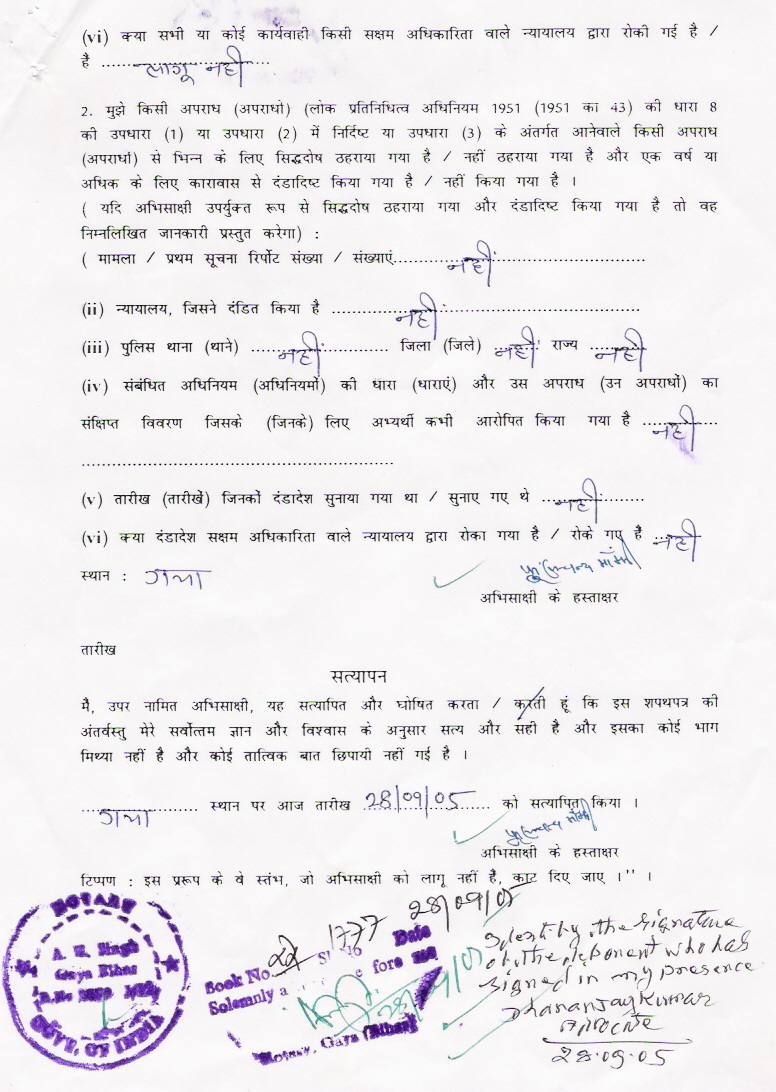 (vi) क्या सभी या कोई कार्यवाही किसी सक्षम अधिकारिता वाले न्यायालय द्वारा रोकी गई है /
है ..... लागू नही
2. मुझे किसी अपराध (अपराधो) (लोक प्रतिनिधित्व अधिनियम 1951 (1951 का 43) की धारा 8
की उपधारा (1) या उपधारा (2) में निर्दिष्ट या उपधारा (3) के अंतर्गत आनेवाले किसी अपराध
(अपराधों) से भिन्न के लिए सिद्धदोष ठहराया गया है / नहीं ठहराया गया है और एक वर्ष या
अधिक के लिए कारावास से दंडादिष्ट किया गया है / नहीं किया गया है ।
( यदि अभिसाक्षी उपर्युक्त रूप से सिद्धदोष ठहराया गया और दंडादिष्ट किया गया है तो वह
निम्नलिखित जानकारी प्रस्तुत करेगा) :
( मामला / प्रथम सूचना रिर्पोट संख्या / संख्याएं..... नही
(ii) न्यायालय, जिसने दंडित किया है ..... नही
(iii) पुलिस थाना (थाने) ..... नही ..... जिला (जिले) नही राज्य नही
(iv) संबंधित अधिनियम (अधिनियमों) की धारा (धाराएं) और उस अपराध (उन अपराधों) का
संक्षिप्त विवरण जिसके (जिनके) लिए अभ्यर्थी कभी आरोपित किया गया है ..... नही
.....
(v) तारीख (तारीखें) जिनकों दंडादेश सुनाया गया था / सुनाए गए थे ..... नही
(vi) क्या दंडादेश सक्षम अधिकारिता वाले न्यायालय द्वारा रोका गया है / रोके गए है ... नही
स्थान : गया
अभिसाक्षी के हस्ताक्षर
तारीख
सत्यापन
मै, उपर नामित अभिसाक्षी, यह सत्यापित और घोषित करता / करती हूं कि इस शपथपत्र की
अंतर्वस्तु मेरे सर्वोत्तम ज्ञान और विश्वास के अनुसार सत्य और सही है और इसका कोई भाग
मिथ्या नहीं है और कोई तात्विक बात छिपायी नहीं गई है ।
गया ..... स्थान पर आज तारीख 28/09/05 ..... को सत्यापित किया ।
अभिसाक्षी के हस्ताक्षर
टिप्पण : इस प्ररूप के वे स्तंभ, जो अभिसाक्षी को लागू नहीं है, काट दिए जाए ।'' ।
NOTARY
A. K. Singh
Gaya Bihar
GOVT. OF INDIA
28/09/05
Book No. 1777 Date
Solemnly a fore me
Notary, Gaya (Bihar)
the Signature
of the deponent who has
signed in my presence
Dhananjay Kumar
28.09.05